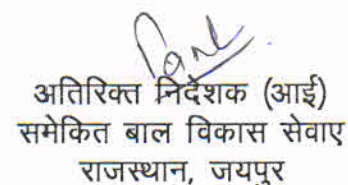 अतिरिक्त निदेशक (आई)
समेकित बाल विकास सेवाए
राजस्थान, जयपुर